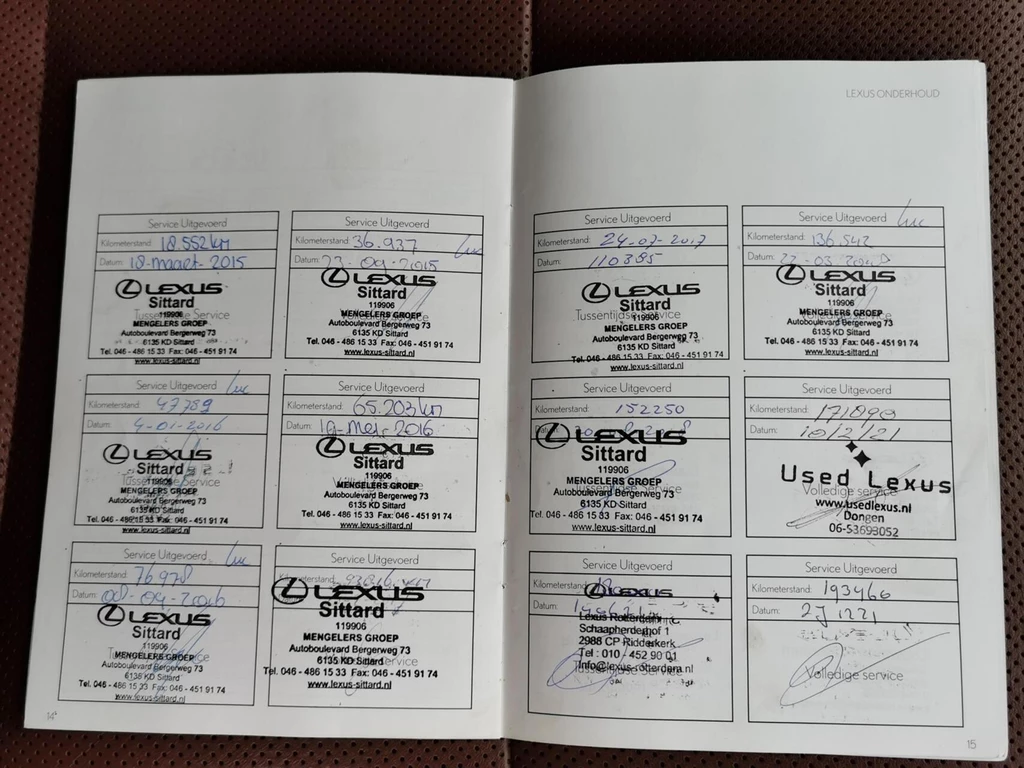 LEXUS ONDERHOUD
Service Uitgevoerd
Kilometerstand: 18.552 km
Datum: 18-maart-2015
LEXUS
Sittard
119906
Tussentijdse Service
MENGELERS GROEP
Autoboulevard Bergerweg 73
6135 KD Sittard
Tel. 046 - 486 15 33 Fax: 046 - 451 91 74
www.lexus-sittard.nl
Service Uitgevoerd
Luc
Kilometerstand: 36.937
Datum: 23-09-2015
LEXUS
Sittard
119906
MENGELERS GROEP
Volledige service
Autoboulevard Bergerweg 73
6135 KD Sittard
Tel. 046 - 486 15 33 Fax: 046 - 451 91 74
www.lexus-sittard.nl
Service Uitgevoerd
Luc
Kilometerstand: 47789
Datum: 4-01-2016
LEXUS
Sittard
Tussentijdse Service
119906
MENGELERS GROEP
Autoboulevard Bergerweg 73
6135 KD Sittard
Tel. 046 - 486 15 33 Fax: 046 - 451 91 74
www.lexus-sittard.nl
Service Uitgevoerd
Kilometerstand: 65.203 km
Datum: 19-Mei-2016
LEXUS
Sittard
119906
MENGELERS GROEP
Autoboulevard Bergerweg 73
6135 KD Sittard
Tel. 046 - 486 15 33 Fax: 046 - 451 91 74
www.lexus-sittard.nl
Service Uitgevoerd
Luc
Kilometerstand: 76978
Datum:
LEXUS
Sittard
119906
MENGELERS GROEP
Autoboulevard Bergerweg 73
6135 KD Sittard
Tel. 046 - 486 15 33 Fax: 046 - 451 91 74
www.lexus-sittard.nl
Service Uitgevoerd
LEXUS
Sittard
119906
MENGELERS GROEP
Autoboulevard Bergerweg 73
6135 KD Sittard
Tel. 046 - 486 15 33 Fax: 046 - 451 91 74
www.lexus-sittard.nl
14
Service Uitgevoerd
Kilometerstand: 24-07-2017
Datum: 110385
LEXUS
Sittard
Tussentijdse Service
119906
MENGELERS GROEP
Autoboulevard Bergerweg 73
6135 KD Sittard
Tel. 046 - 486 15 33 Fax: 046 - 451 91 74
www.lexus-sittard.nl
Service Uitgevoerd
Luc
Kilometerstand: 136.542
Datum: 22-03
LEXUS
Sittard
119906
MENGELERS GROEP
Volledige service
Autoboulevard Bergerweg 73
6135 KD Sittard
Tel. 046 - 486 15 33 Fax: 046 - 451 91 74
www.lexus-sittard.nl
Service Uitgevoerd
Kilometerstand: 152250
LEXUS
Sittard
119906
MENGELERS GROEP
Tussentijdse Service
Autoboulevard Bergerweg 73
6135 KD Sittard
Tel. 046 - 486 15 33 Fax: 046 - 451 91 74
www.lexus-sittard.nl
Service Uitgevoerd
Kilometerstand: 171090
Datum: 10/2/21
Used Lexus
Volledige service
www.usedlexus.nl
Dongen
06-53693052
Service Uitgevoerd
Kilometerstand:
LEXUS
Datum:
Lexus Rotterdam
Schaapherderhof 1
2988 CP Ridderkerk
Tel : 010 - 452 90 01
Info@lexus-rotterdam.nl
Tussentijdse Service
Service Uitgevoerd
Kilometerstand: 193466
Datum:
Volledige service
15